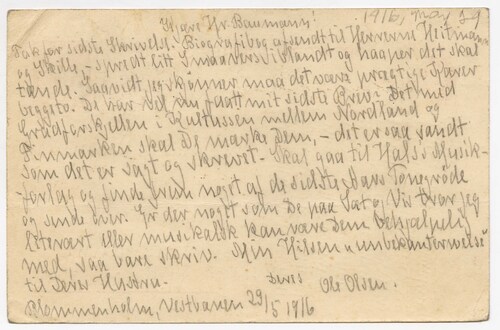 Kjære Hr. Baumann! 1916, May 29
Tak for sidste Skrivelse! Biografibog afsendt til Herrerne Heitmann
og Skille, – spredt litt Smaavers iblandt og haaper det skal
tænde. Saavidt jeg skjønner maa det være prægtige Karer
beggeto. De har vel nu faatt mit sidste Brev? Det med
Gradforskjellen i Kulturen mellem Nordland og
Finmarken skal De mærke Dem, – det er saa sandt
som det er sagt og skrevet. Skal gaa til Hals's Musik-
forlag og finde frem noget af de sidste Aars Tonegrøde
og sende over. Er der noget som De paa Sat og Vis tror jeg
literært eller musikalsk kan være Dem behjælpelig
med, saa bare skriv. Min Hilsen unbekanterweise
til Deres Hustru.
Deres Ole Olsen.
Blommenholm, Vestbanen 29/5 1916